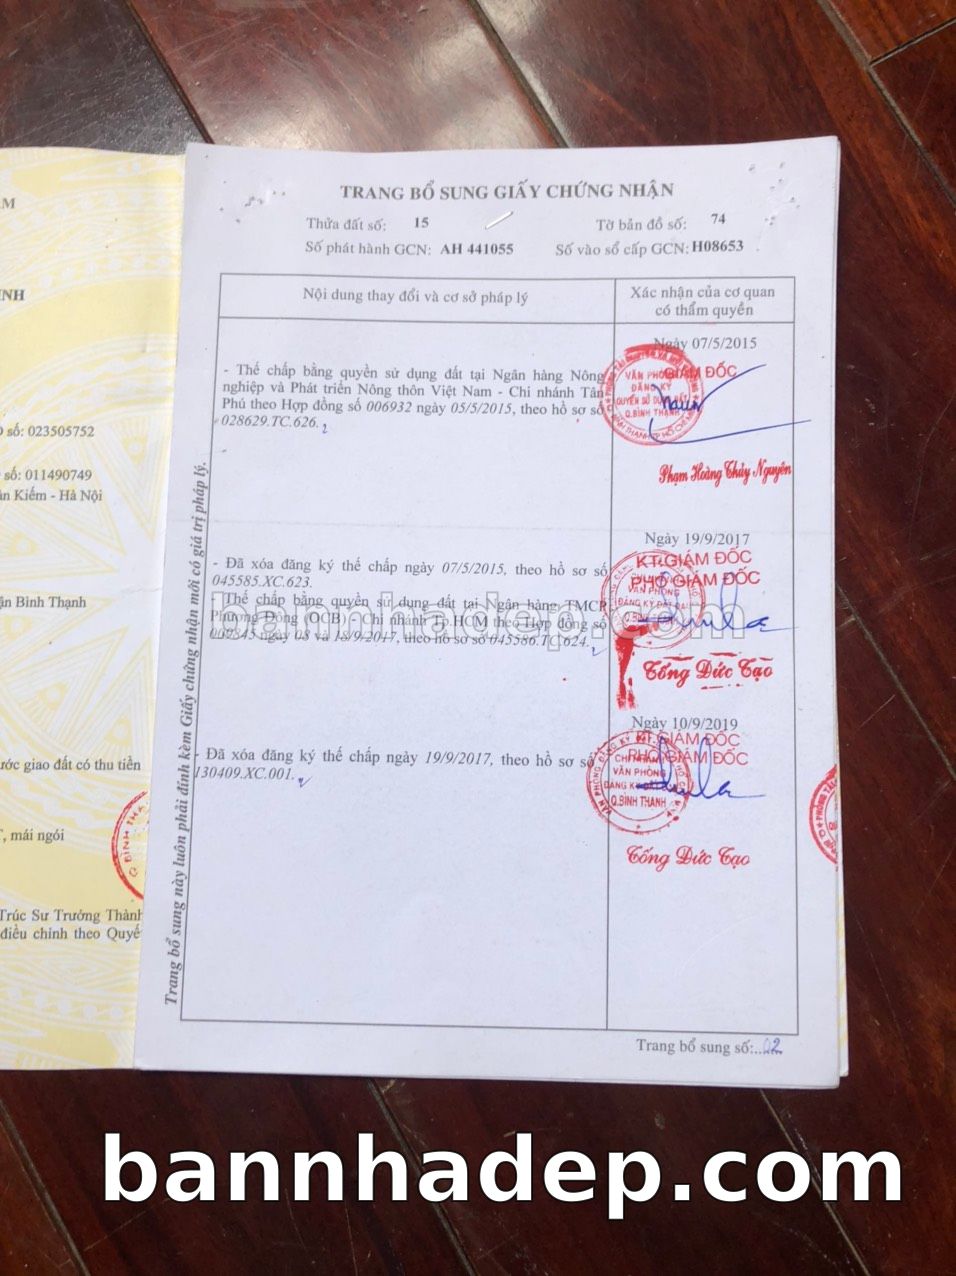 AM
NH
số: 023505752
số: 011490749
Kiếm - Hà Nội
Bình Thạnh
ước giao đất có thu tiền
, mái ngói
Trúc Sư Trưởng Thành
điều chỉnh theo Quyế
Q BÌNH THẠ
TRANG BỔ SUNG GIẤY CHỨNG NHẬN
Thửa đất số: 15 Tờ bản đồ số: 74
Số phát hành GCN: AH 441055 Số vào sổ cấp GCN: H08653
Nội dung thay đổi và cơ sở pháp lý
Xác nhận của cơ quan
có thẩm quyền
- Thế chấp bằng quyền sử dụng đất tại Ngân hàng Nông
nghiệp và Phát triển Nông thôn Việt Nam - Chi nhánh Tân
Phú theo Hợp đồng số 006932 ngày 05/5/2015, theo hồ sơ số
028629.TC.626.
Ngày 07/5/2015
GIÁM ĐỐC
VĂN PHÒNG
ĐĂNG KÝ
QUYỀN SỬ DỤNG ĐẤT
Q.BÌNH THẠNH
Phạm Hoàng Thủy Nguyên
- Đã xóa đăng ký thế chấp ngày 07/5/2015, theo hồ sơ số
045585.XC.623.
Thế chấp bằng quyền sử dụng đất tại Ngân hàng TMCP
Phương Đông (OCB) - Chi nhánh Tp.HCM theo Hợp đồng số
ngày 08 và 18/9/2017, theo hồ sơ số 045586.TC.624.
Ngày 19/9/2017
KT.GIÁM ĐỐC
PHÓ GIÁM ĐỐC
VĂN PHÒNG
ĐĂNG KÝ ĐẤT ĐAI
Tống Đức Tạo
bannhadep.com
- Đã xóa đăng ký thế chấp ngày 19/9/2017, theo hồ sơ số
130409.XC.001.
Ngày 10/9/2019
KT.GIÁM ĐỐC
PHÓ GIÁM ĐỐC
CHI NHÁNH
VĂN PHÒNG
ĐĂNG KÝ ĐẤT ĐAI
Q.BÌNH THẠNH
Tống Đức Tạo
Trang bổ sung này luôn phải đính kèm Giấy chứng nhận mới có giá trị pháp lý.
Trang bổ sung số:...02
bannhadep.com